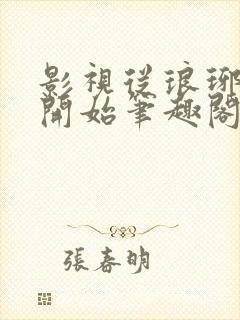 影視從琅琊
開始筆趣閣
張春明